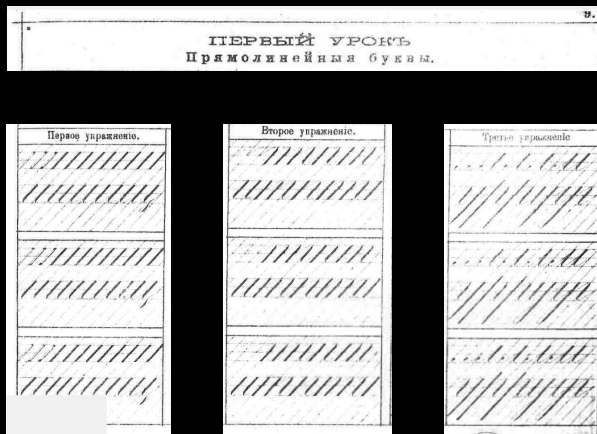 9.
ПЕРВЫЙ УРОКЪ
Прямолинейныя буквы.
Первое упражненіе.
Второе упражненіе.
Третье упражненіе